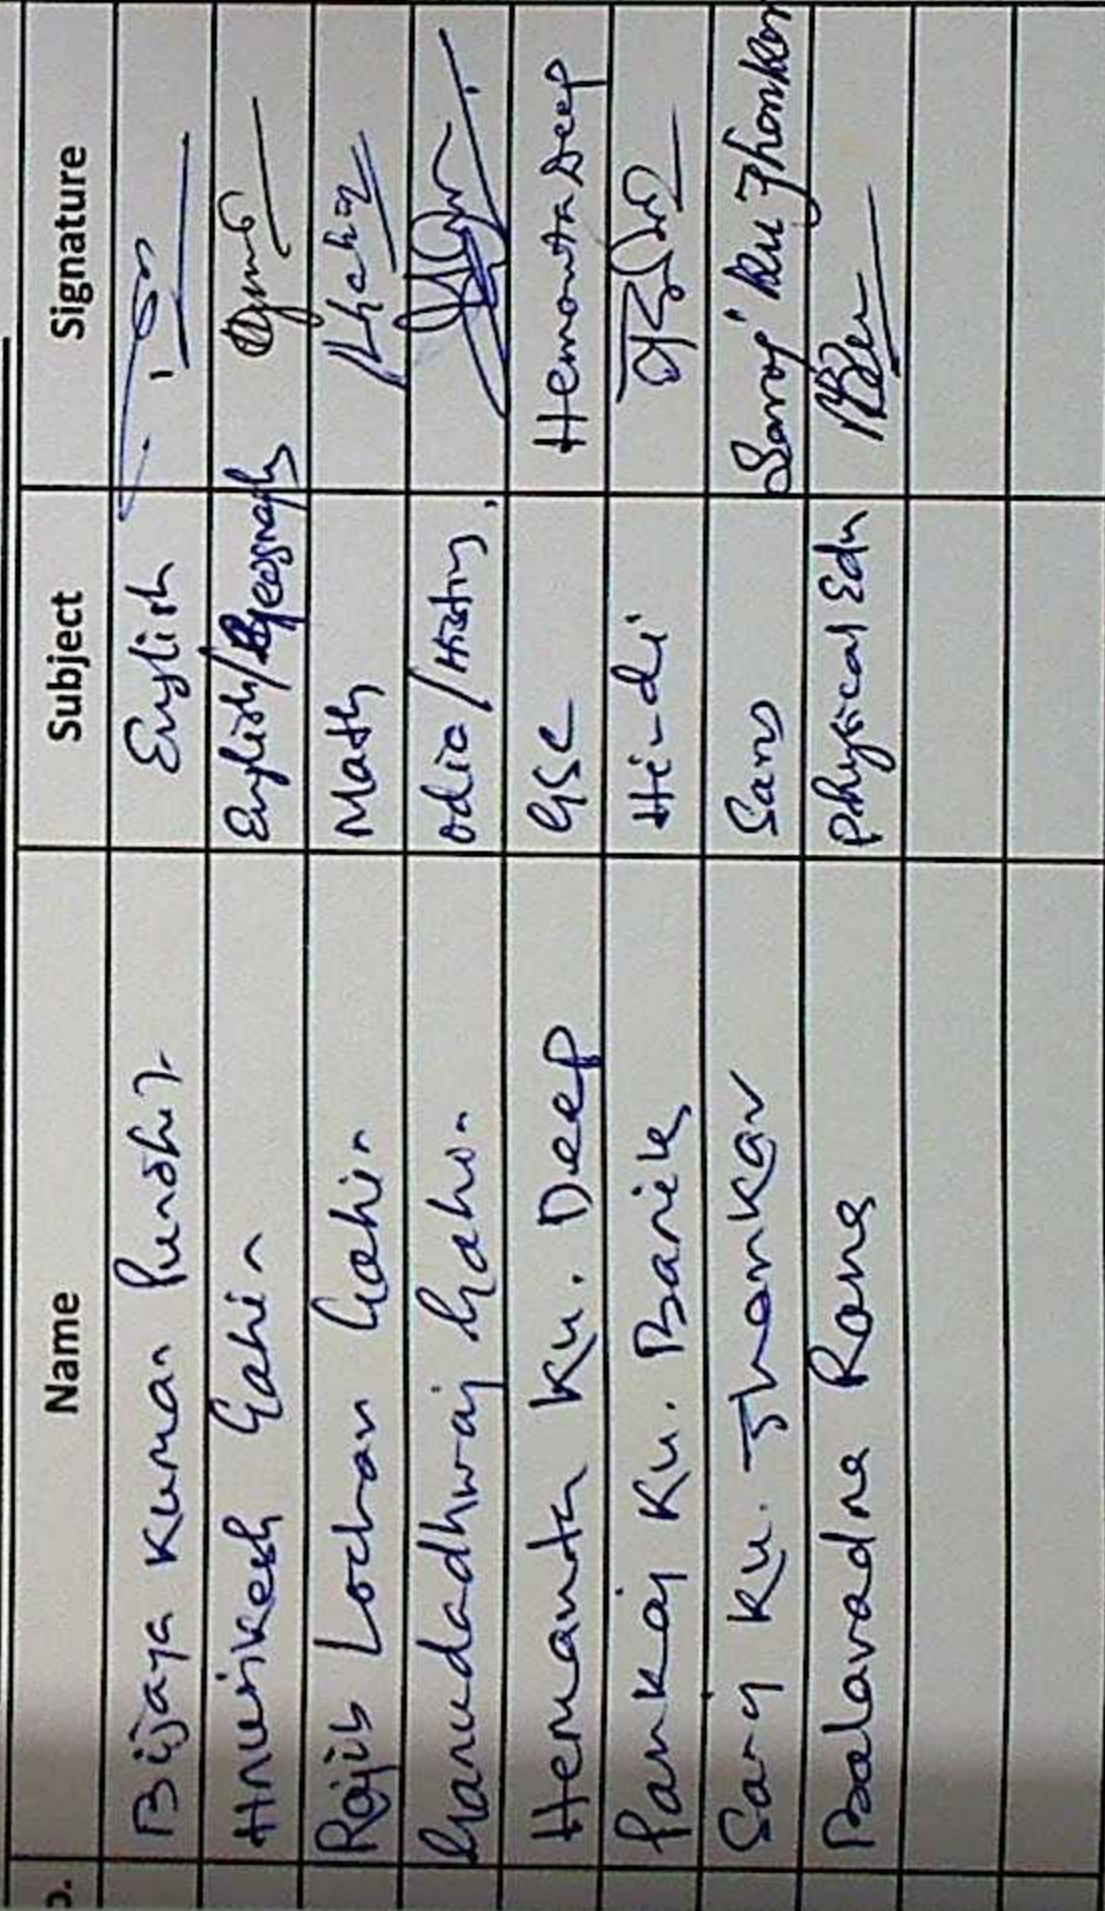 Name Subject Signature
Bijaya Kumar Purohit English
Hrusikesh Gahir English/Geography
Rajib Lochan Gahir Math
Garudadhwaj Gahir odia/History,
Hemanta Ku. Deep GSC Hemanta Deep
Pankaj Ku. Barik Hindi
Saroj Ku. Jhankar Sans Saroj Ku Jhankar
Balavadra Rana Physical Edn